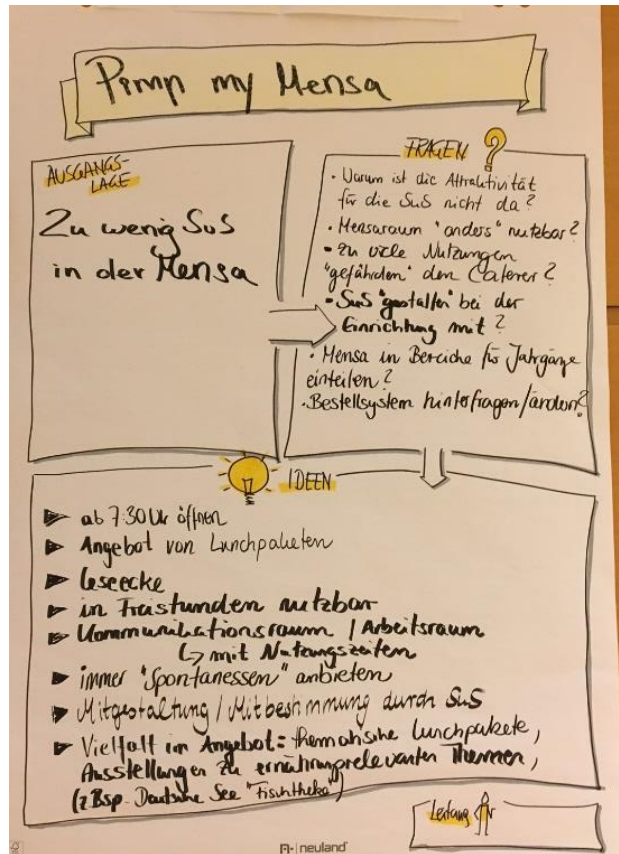 Pimp my Mensa
AUSGANGS-
LAGE
Zu wenig SuS
in der Mensa
FRAGEN ?
· Warum ist die Attraktivität
für die SuS nicht da?
· Mensaraum "anders" nutzbar?
· Zu viele Nutzungen
"gefährden" den Caterer?
· SuS "gestalten" bei der
Einrichtung mit?
· Mensa in Bereiche für Jahrgänge
einteilen?
· Bestellsystem hinterfragen/ändern?
IDEEN
► ab 7:30 Uhr öffnen
► Angebot von Lunchpaketen
► Leseecke
► in Freistunden nutzbar
► Kommunikationsraum / Arbeitsraum
↳ mit Nutzungszeiten
► immer "Spontanessen" anbieten
► Mitgestaltung / Mitbestimmung durch SuS
► Vielfalt im Angebot: thematische Lunchpakete,
Ausstellungen zu ernährungsrelevanten Themen,
(z.Bsp. Deutsche See "Fischtheke")
Leitung
neuland